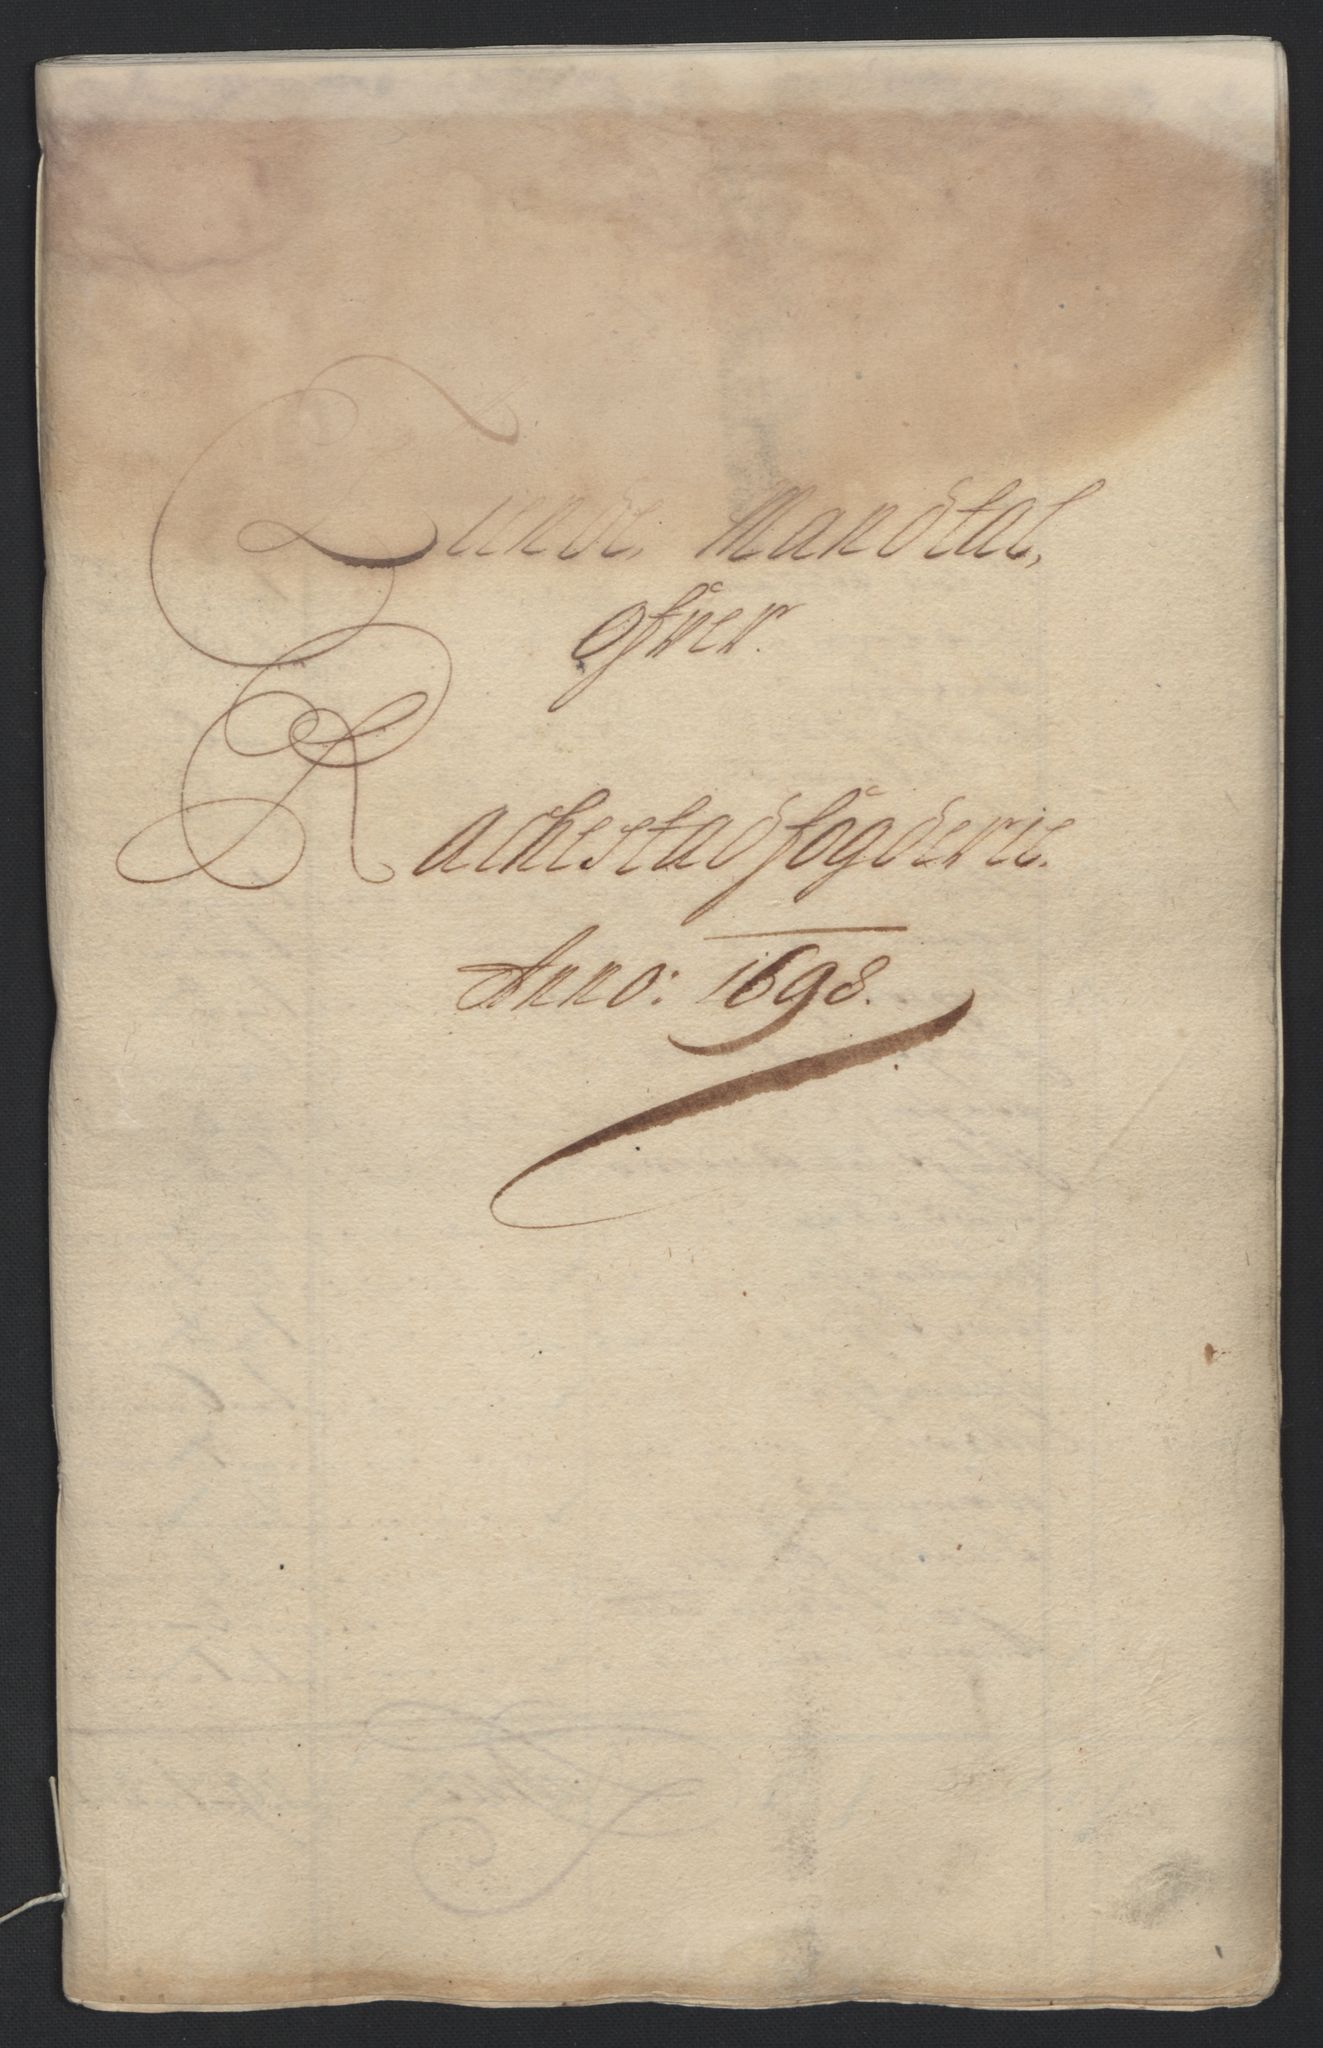 Tiende Mandtal,
ofver.
Rachestadfogderie.
Anno: 1698.